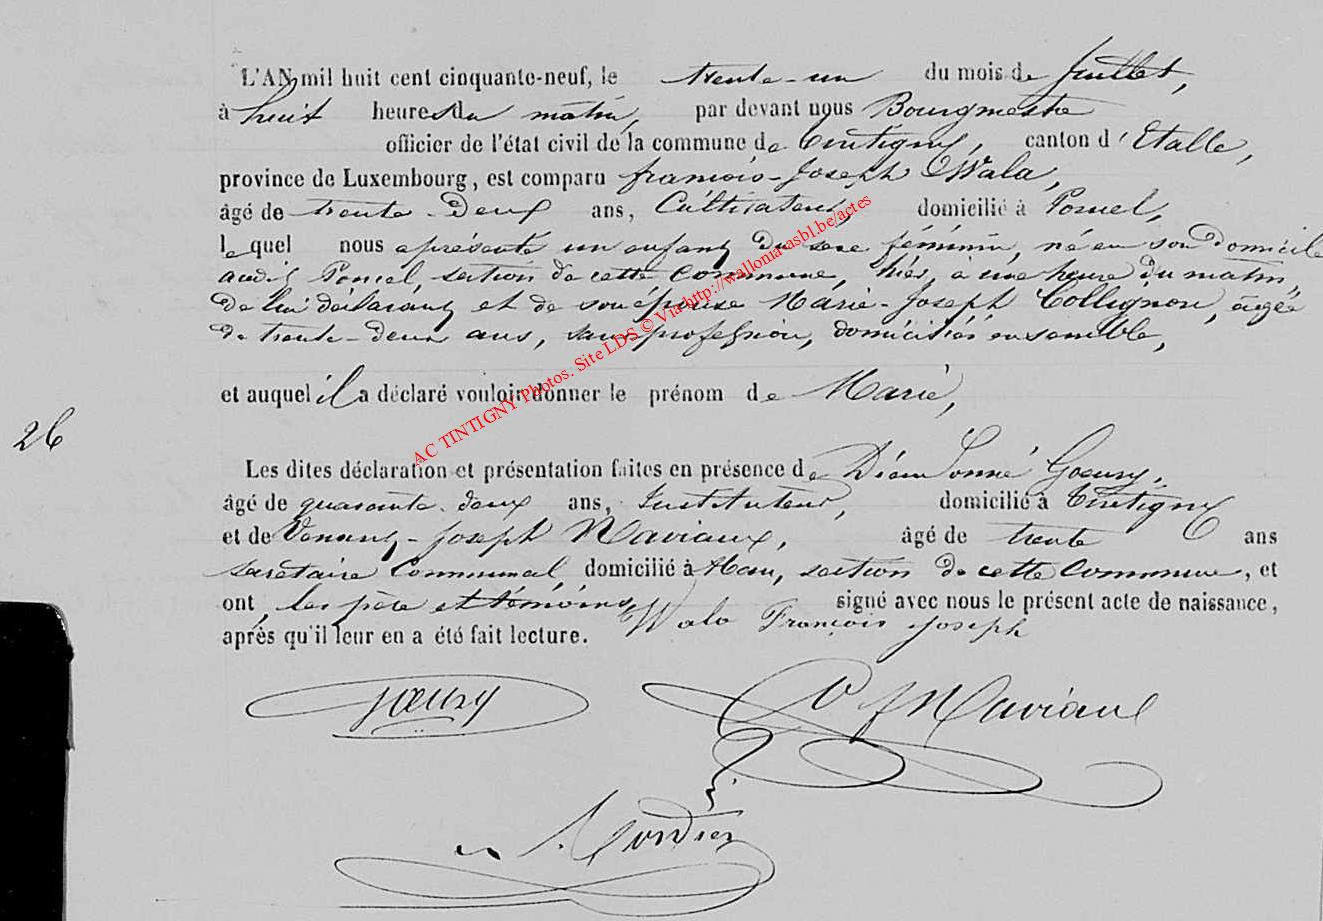 L'AN mil huit cent cinquante-neuf, le trente-un du mois de Juillet,
à huit heures du matin, par devant nous Bourgmestre
officier de l'état civil de la commune de Tintigny, canton d'Etalle,
province de Luxembourg, est comparu françois-Joseph Wala,
âgé de trente-Deux ans, Cultivateur, domicilié à Poncel,
lequel nous a présenté un enfant du sexe féminin, né en son Domicile
audit Poncel, section de cette Commune, hier, à une heure du matin,
de lui déclarant et de son épouse Marie-Joseph Collignon, âgée
de trente-deux ans, sans profession, domiciliés ensemble,
et auquel il a déclaré vouloir donner le prénom de Marie,
26
Les dites déclaration et présentation faites en présence de Dieudonné Goeury,
âgé de quarante-deux ans, Instituteur, domicilié à Tintigny
et de Venant-Joseph Maviaux, âgé de trente ans
secrétaire Communal, domicilié à Han, section de cette Commune, et
ont, les père et témoins, signé avec nous le présent acte de naissance,
après qu'il leur en a été fait lecture. Wala François Joseph
Goeury
V J Maviaux
AC TINTIGNY Photos. Site LDS © Via http://wallonia-asbl.be/actes